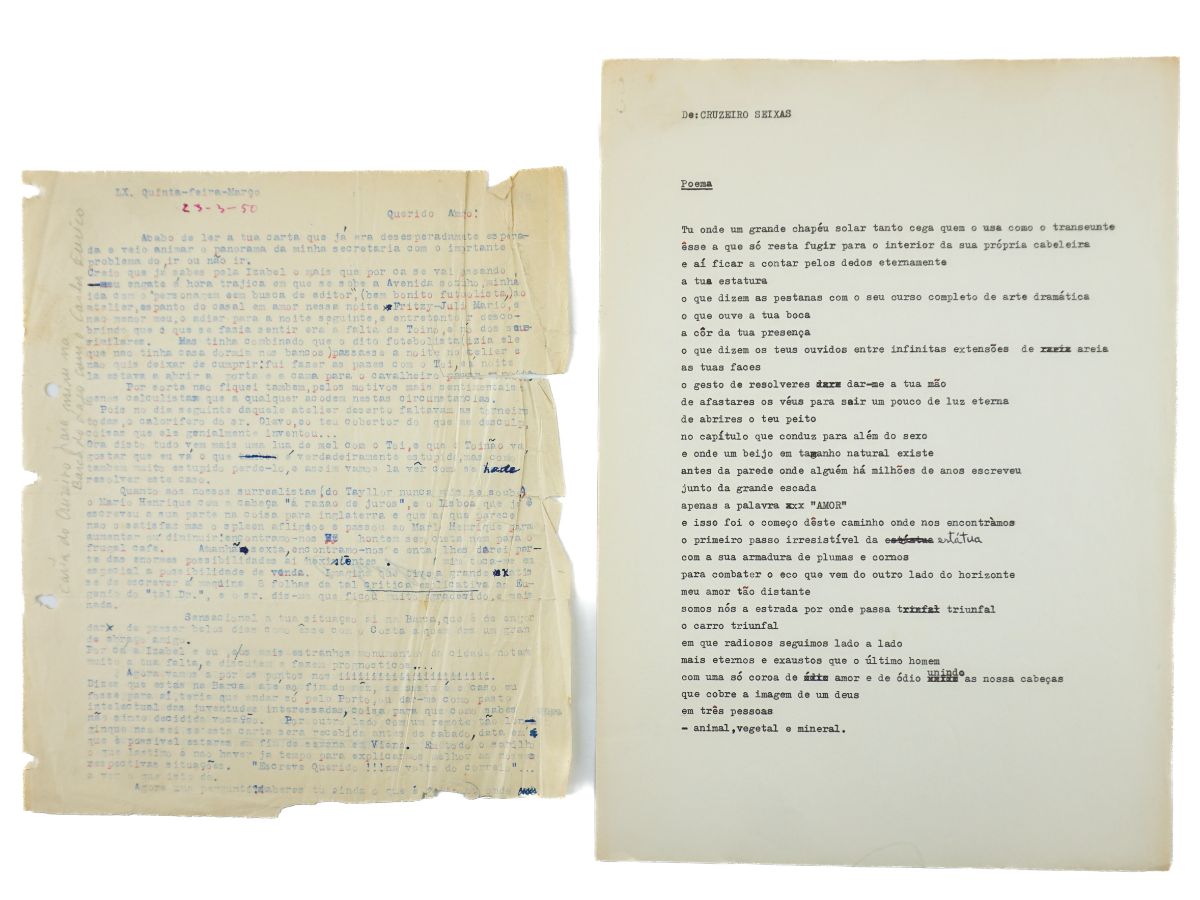 LX. Quinta-feira-Março
23-3-50
Querido Amro!
Ababo de ler a tua carta que já éra desesperadamate espera-
da e veio animar o panorama da minha secretaria com o importante
problema do ir ou não ir.
Creio que já sabes pela Izabel o mais que por ca se vai passando
meu engate á hora trajica em que se sobe a Avenida sozinho, minha
ida com o "personagem em busca de editor", (bem bonito futbolista) ao
atelier, espanto do casal em amor nessa noite Fritzy-Juli Mario, e
nao menor meu, o adiar para a noite seguinte, e entretanto ir desco-
brindo que o que se fazia sentir era a falta de Toino, e nó dos sus
similares. Mas tinha combinado que o dito futebolista (dizia ele
que não tinha casa dormia nos bancos) passasse a noite no telier e
nao quis deixar de cumprir: fui fazer as pazes com o Toi, e á noite
la estava a abrir a porta e a cama para o cavalheiro
Por sorte nao fiquei tambem, pelos motivos mais sentimentais
menos calculistas que a qualquer acodem nestas circunstancias.
Pois no dia seguinte daquele atelier deserto faltavam as torneira
todas, o calorifero do sr. Olavo, eo teu cobertor do que me desculp,
coisas que ele genialmente inventou...
Ora disto tudo vem mais uma lua de mel com o Toi, e que o Toinão va
gostar que eu vá o que é verdadeiramente estupido, mas como
tambem muito estupido perde-lo, e assim vamos la vêr como se hade
resolver este caso.
Quanto aos nossos surrealistas (do Tayllor nunca mais se soube)
o Mario Henrique com a cabeça "á razao de juros", e o Lisboa que já
escreveu a sua parte na coisa para inglaterra e que ao que parece
nao osatisfaz mas o spleen afligeo e passou ao Mari Henrique para
aumentar ou diminuir: encontramo-nos hontem sem cheta nem para o
frugal cafe. Amanhã sexta, encontramo-nos e entao lhes darei par-
te das enormes possibilidades ai existentes. A mim toca-me em
especial a possibilidade de venda. Imagine que tive a grande
se de escrever á maquina 8 folhas da tal critica explicativa ao Eu-
genio do "tal.Dm.", e o sr. diz-me que ficou muito agradecido, e mais
nada.
Sensacional a tua situaçao ai na Barca, que é de engor
dar x de passar belos dias como êsse com o Costa a quem das um gran
de abraço amigo.
Por ca a Izabel e eu, e os mais estranhos monumentos da cidade notam
muito a tua falta, e discutem e fazem prognosticos....
Agora vamos a por os pontos nos iiiiiiiiiiiiiiiiiiii.
Dizes que estas na Barca ate ao fim do mez, se assim é o caso eu
fosse para aí teria que andar só pelo Porto, ou dar-me como pasto
intelectual das juventudes interessadas, coisa para que como sabes
não sinto decidida vocação. Por outro lado com um regote tão lon-
ginquo nao sei se esta carta sera recebida antes de sabado, data em
que é possivel estares em fim de semana em Viana. Emtodo o sarilho
o que lastimo é nao haver ja tempo para explicarmos melhor as nossas
respectivas situações. "Escreve Querido !!!na volta do correio"...
a ver o que isto da.
Agora uma pergunta: saberes tu ainda o que é
Carta do Cruzeiro
De:CRUZEIRO SEIXAS
Poema
Tu onde um grande chapéu solar tanto cega quem o usa como o transeunte
êsse a que só resta fugir para o interior da sua própria cabeleira
e aí ficar a contar pelos dedos eternamente
a tua estatura
o que dizem as pestanas com o seu curso completo de arte dramática
o que ouve a tua boca
a côr da tua presença
o que dizem os teus ouvidos entre infinitas extensões de areia
as tuas faces
o gesto de resolveres dar-me a tua mão
de afastares os véus para sair um pouco de luz eterna
de abrires o teu peito
no capítulo que conduz para além do sexo
e onde um beijo em tamanho natural existe
antes da parede onde alguém há milhões de anos escreveu
junto da grande escada
apenas a palavra xxx "AMOR"
e isso foi o começo dêste caminho onde nos encontràmos
o primeiro passo irresistível da estátua
com a sua armadura de plumas e cornos
para combater o eco que vem do outro lado do horizonte
meu amor tão distante
somos nós a estrada por onde passa triunfal
o carro triunfal
em que radiosos seguimos lado a lado
mais eternos e exaustos que o último homem
com uma só coroa de amor e de ódio unindo as nossa cabeças
que cobre a imagem de um deus
em três pessoas
- animal,vegetal e mineral.